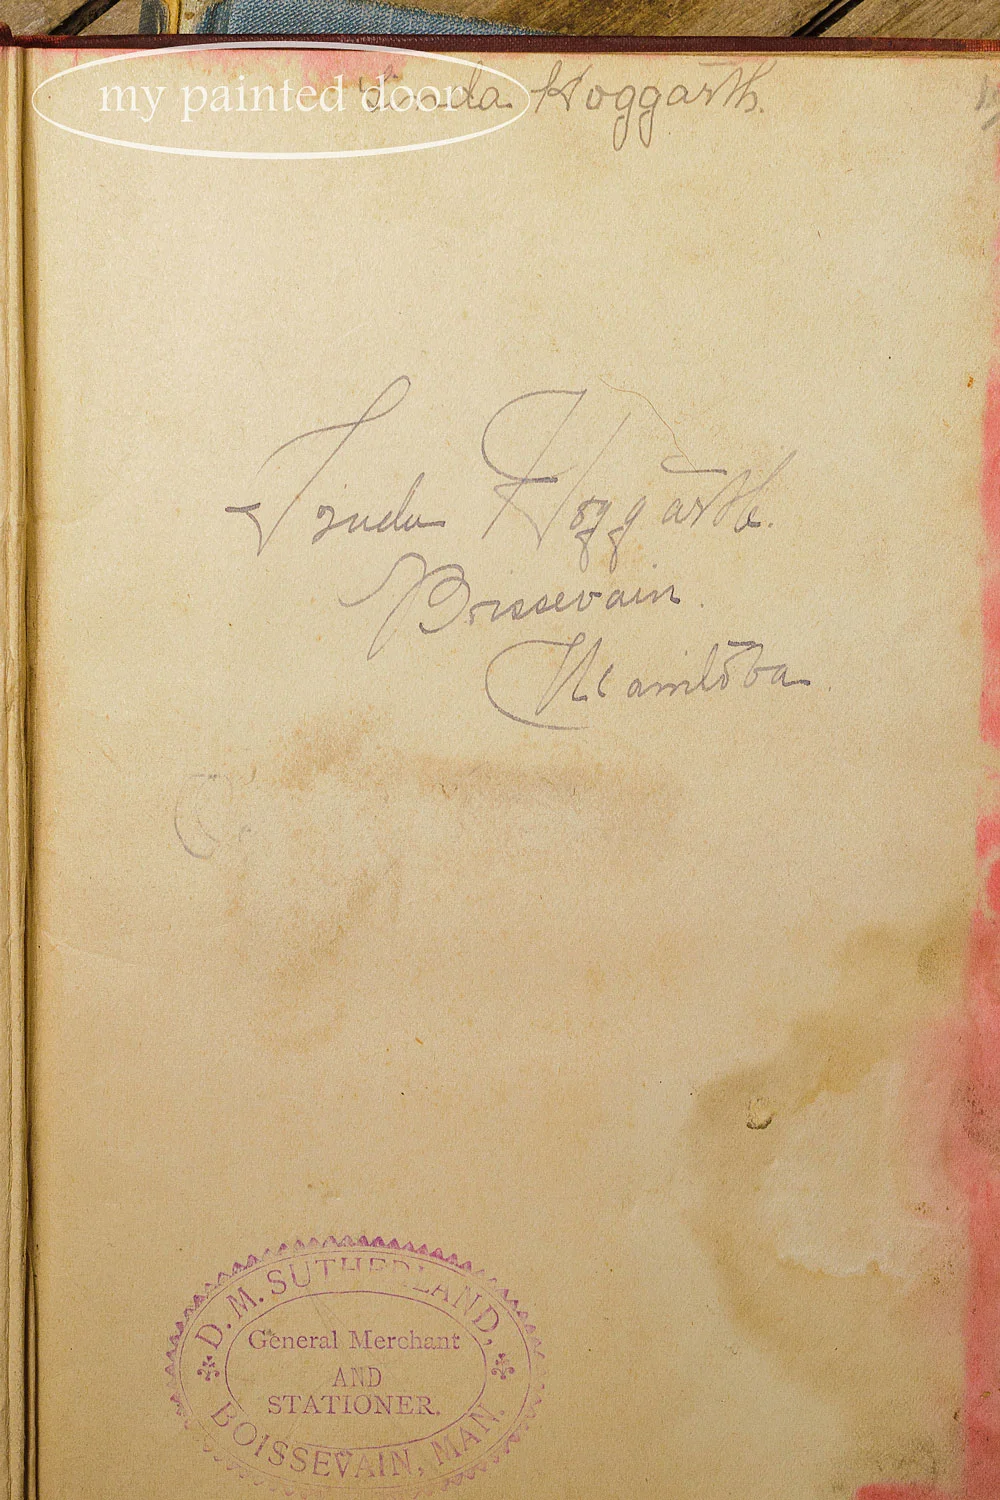 my painted door
Linda Hoggarth.
Linda Hoggarth.
Boissevain.
Manitoba.
D. M. SUTHERLAND,
General Merchant
AND
STATIONER.
BOISSEVAIN, MAN.